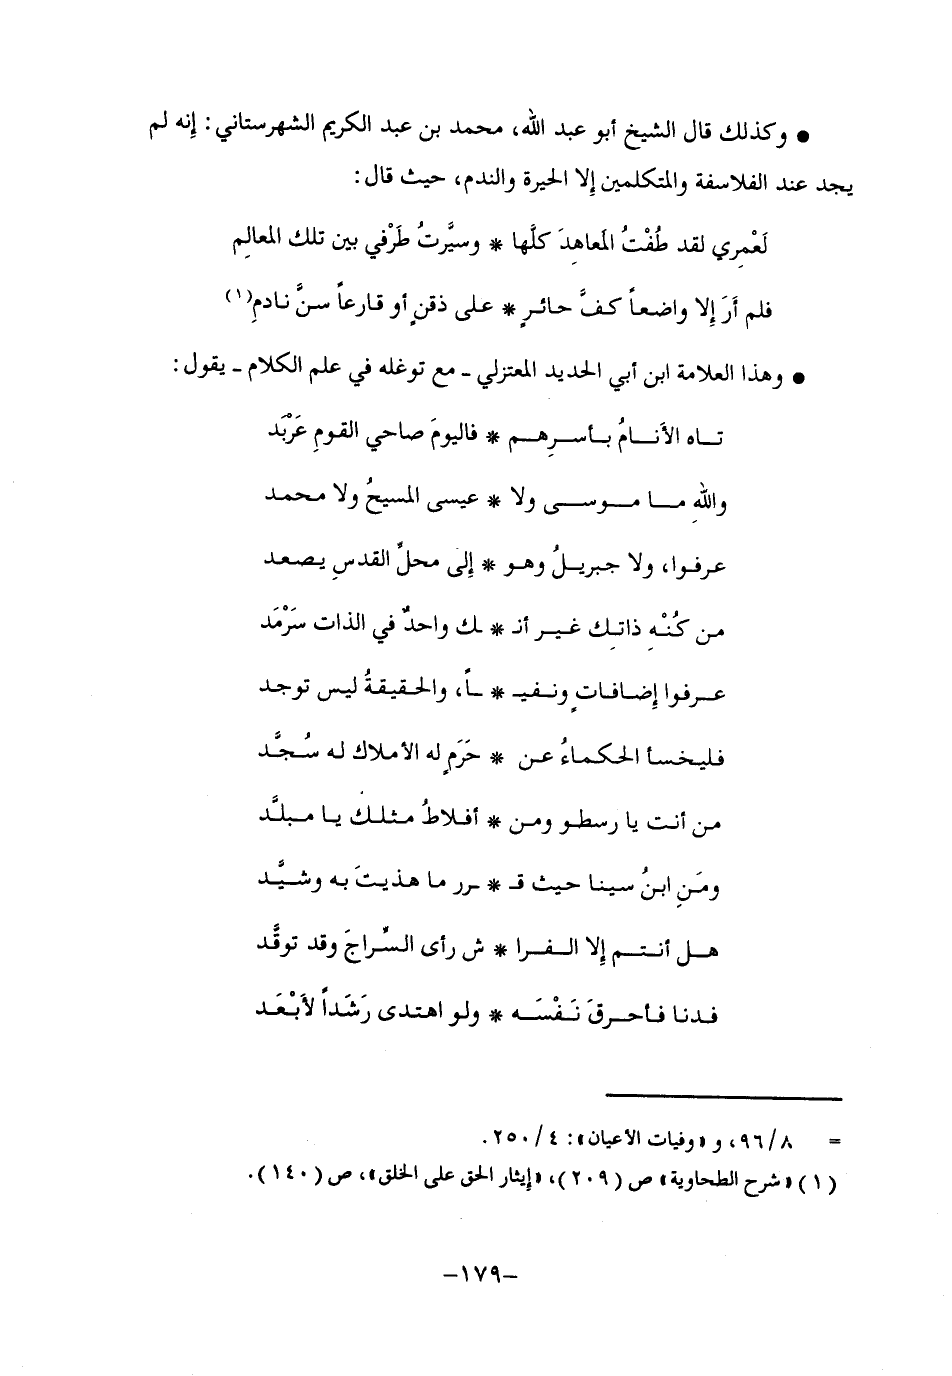 ● وكذلك قال الشيخ أبو عبد الله، محمد بن عبد الكريم الشهرستاني: إنه لم
يجد عند الفلاسفة والمتكلمين إلا الحيرة والندم، حيث قال:
لَعْمِري لقد طُفْتُ المَعاهِدَ كلَّها * وسيَّرتُ طَرْفي بين تلك المعالِمِ
فلم أَرَ إِلا واضعاً كفَّ حائرٍ * على ذقنٍ أو قارعاً سنَّ نادمِ(١)
● وهذا العلامة ابن أبي الحديد المعتزلي ـ مع توغله في علم الكلام ـ يقول:
تــاه الأنــامُ بــأســرِهــم * فاليومَ صاحي القومِ عَرْبَد
واللهِ مــا مــوســى ولا * عيسى المسيحُ ولا محمد
عرفوا، ولا جبريــلُ وهــو * إلى محلِّ القدسِ يصعد
من كُنْهِ ذاتِـك غيــر أنـ * ـك واحدٌ في الذات سَرْمَد
عـرفوا إضـافـاتٍ ونـفيـ * ـاً، والحقيقةُ ليس توجد
فليخسأ الحكماءُ عـن * حَرَمٍ له الأملاك له سُجَّد
من أنت يا رسطو ومن * أفلاطُ مثلك يا مبلَّد
ومَنِ ابنُ سينا حيث قـ * ـرر ما هذيتَ به وشيَّد
هــل أنتــم إلا الــفــرا * ش رأى السِّراجَ وقد توقَّد
فـدنا فـأحـرقَ نَـفْسَــه * ولو اهتدى رَشَداً لأَبْعَـد
= ٩٦/٨، و «وفيات الأعيان»: ٤/ ٢٥٠.
(١) «شرح الطحاوية» ص (٢٠٩)، «إيثار الحق على الخلق»، ص (١٤٠).
–١٧٩–